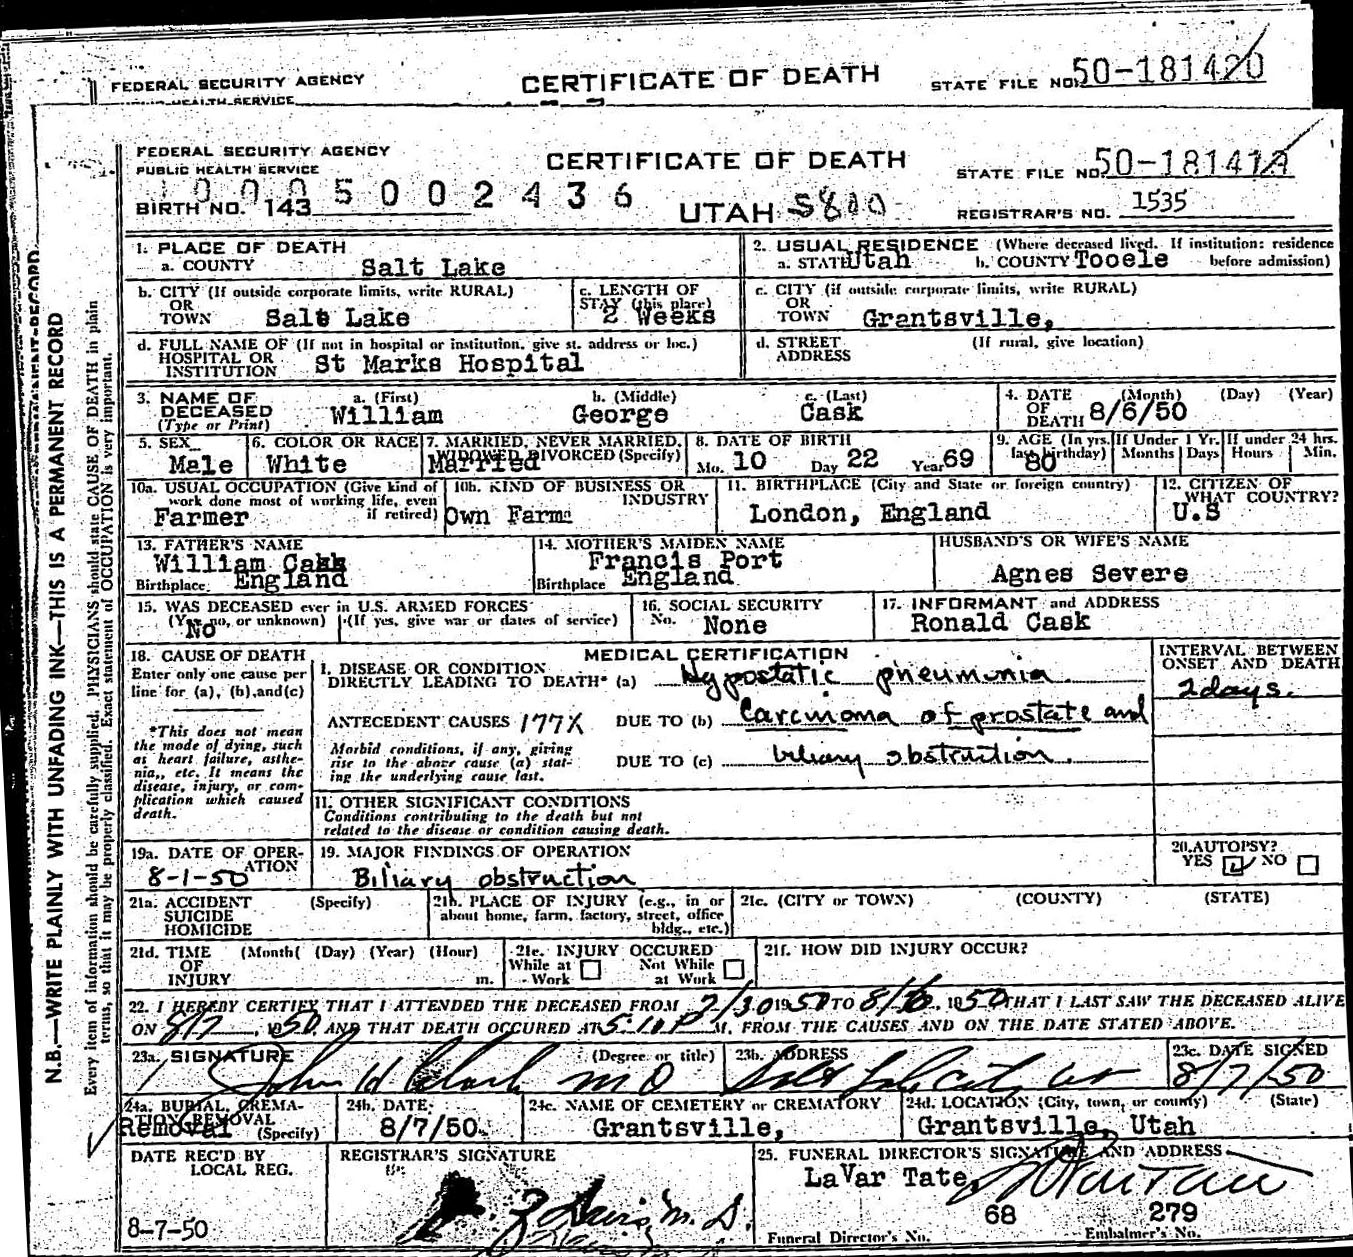 FEDERAL SECURITY AGENCY CERTIFICATE OF DEATH STATE FILE NO. 50-181420
HEALTH SERVICE
FEDERAL SECURITY AGENCY
PUBLIC HEALTH SERVICE CERTIFICATE OF DEATH STATE FILE NO. 50-181419
0005002436
BIRTH NO. 143 UTAH S800 REGISTRAR'S NO. 1535
N.B.—WRITE PLAINLY WITH UNFADING INK—THIS IS A PERMANENT RECORD
Every item of information should be carefully supplied. PHYSICIANS should state CAUSE OF DEATH in plain
terms, so that it may be properly classified. Exact statement of OCCUPATION is very important.
1. PLACE OF DEATH
a. COUNTY Salt Lake
2. USUAL RESIDENCE (Where deceased lived. If institution: residence
a. STATE Utah b. COUNTY Tooele before admission)
b. CITY (If outside corporate limits, write RURAL)
OR
TOWN Salt Lake
c. LENGTH OF
STAY (this place)
2 Weeks
c. CITY (if outside corporate limits, write RURAL)
OR
TOWN Grantsville,
d. FULL NAME OF (If not in hospital or institution, give st. address or loc.)
HOSPITAL OR
INSTITUTION St Marks Hospital
d. STREET (If rural, give location)
ADDRESS
3. NAME OF a. (First) b. (Middle) c. (Last)
DECEASED
(Type or Print) William George Cask
4. DATE (Month) (Day) (Year)
OF
DEATH 8/6/50
5. SEX
Male
6. COLOR OR RACE
White
7. MARRIED, NEVER MARRIED,
WIDOWED, DIVORCED (Specify)
Married
8. DATE OF BIRTH
Mo. 10 Day 22 Year 69
9. AGE (In yrs.
last birthday)
80
If Under 1 Yr.
Months Days
If under 24 hrs.
Hours Min.
10a. USUAL OCCUPATION (Give kind of
work done most of working life, even
if retired)
Farmer
10b. KIND OF BUSINESS OR
INDUSTRY
Own Farm
11. BIRTHPLACE (City and State or foreign country)
London, England
12. CITIZEN OF
WHAT COUNTRY?
U.S
13. FATHER'S NAME
William Cask
Birthplace England
14. MOTHER'S MAIDEN NAME
Francis Port
Birthplace England
HUSBAND'S OR WIFE'S NAME
Agnes Severe
15. WAS DECEASED ever in U.S. ARMED FORCES
(Yes, no, or unknown) (If yes, give war or dates of service)
No
16. SOCIAL SECURITY
No. None
17. INFORMANT and ADDRESS
Ronald Cask
18. CAUSE OF DEATH
Enter only one cause per
line for (a), (b), and (c)
*This does not mean
the mode of dying, such
as heart failure, asthe-
nia,, etc. It means the
disease, injury, or com-
plication which caused
death.
MEDICAL CERTIFICATION
I. DISEASE OR CONDITION
DIRECTLY LEADING TO DEATH* (a) Hypostatic pneumonia.
ANTECEDENT CAUSES 177X DUE TO (b) Carcinoma of prostate and
Morbid conditions, if any, giving
rise to the above cause (a) stat-
ing the underlying cause last.
DUE TO (c) biliary obstruction.
INTERVAL BETWEEN
ONSET AND DEATH
2 days.
II. OTHER SIGNIFICANT CONDITIONS
Conditions contributing to the death but not
related to the disease or condition causing death.
19a. DATE OF OPER-
ATION
8-1-50
19. MAJOR FINDINGS OF OPERATION
Biliary obstruction
20. AUTOPSY?
YES NO
21a. ACCIDENT (Specify)
SUICIDE
HOMICIDE
21b. PLACE OF INJURY (e.g., in or
about home, farm, factory, street, office
bldg., etc.)
21c. (CITY or TOWN) (COUNTY) (STATE)
21d. TIME (Month( (Day) (Year) (Hour)
OF
INJURY m.
21e. INJURY OCCURED
While at Work Not While at Work
21f. HOW DID INJURY OCCUR?
22. I HEREBY CERTIFY THAT I ATTENDED THE DECEASED FROM 7/30 1950 TO 1950 THAT I LAST SAW THE DECEASED ALIVE
ON 8/7, 1950, AND THAT DEATH OCCURED AT 5:10 P M. FROM THE CAUSES AND ON THE DATE STATED ABOVE.
23a. SIGNATURE (Degree or title)
John H Clark MD
23b. ADDRESS
Salt Lake City, Ut
23c. DATE SIGNED
8/7/50
24a. BURIAL, CREMA-
TION, REMOVAL
(Specify)
Removal
24b. DATE
8/7/50
24c. NAME OF CEMETERY or CREMATORY
Grantsville,
24d. LOCATION (City, town, or county) (State)
Grantsville, Utah
DATE REC'D BY
LOCAL REG.
8-7-50
REGISTRAR'S SIGNATURE
M.D.
25. FUNERAL DIRECTOR'S SIGNATURE AND ADDRESS
LaVar Tate,
68 279
Funeral Director's No. Embalmer's No.